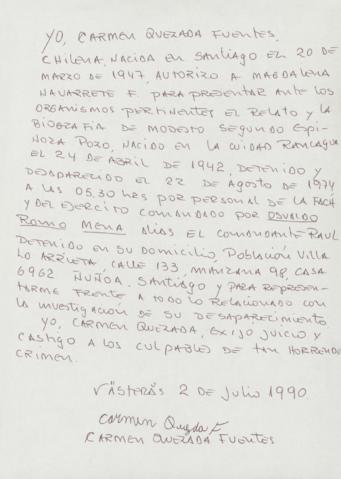 YO, CARMEN QUEZADA FUENTES,
CHILENA, NACIDA EN SANTIAGO EL 20 DE
MARZO DE 1947, AUTORIZO A MAGDALENA
NAVARRETE F. PARA PRESENTAR ANTE LOS
ORGANISMOS PERTINENTES EL RELATO Y LA
BIOGRAFIA DE MODESTO SEGUNDO ESPI-
NOZA POZO, NACIDO EN LA CUIDAD RANCAGUA
EL 24 DE ABRIL DE 1942, DETENIDO Y
DESAPARECIDO EL 22 DE AGOSTO DE 1974
A LAS 05.30 HRS POR PERSONAL DE LA FACH
Y DEL EJERCITO COMANDADO POR OSVALDO
ROMO MENA ALIAS EL COMANDANTE RAUL
DETENIDO EN SU DOMICILIO, POBLACIÓN VILLA
LO ARRIETA, CALLE 133, MANZANA 98, CASA
6962 ÑUÑOA. SANTIAGO Y PARA REPRESEN-
TARME FRENTE A TODO LO RELACIONADO CON
LA INVESTIGACIÓN DE SU DESAPARECIMIENTO
YO, CARMEN QUEZADA, EXIJO JUICIO Y
CASTIGO A LOS CULPABLES DE TAN HORRENDO
CRIMEN.
VÄSTERÅS 2 DE JULIO 1990.
Carmen Quezada F
CARMEN QUEZADA FUENTES